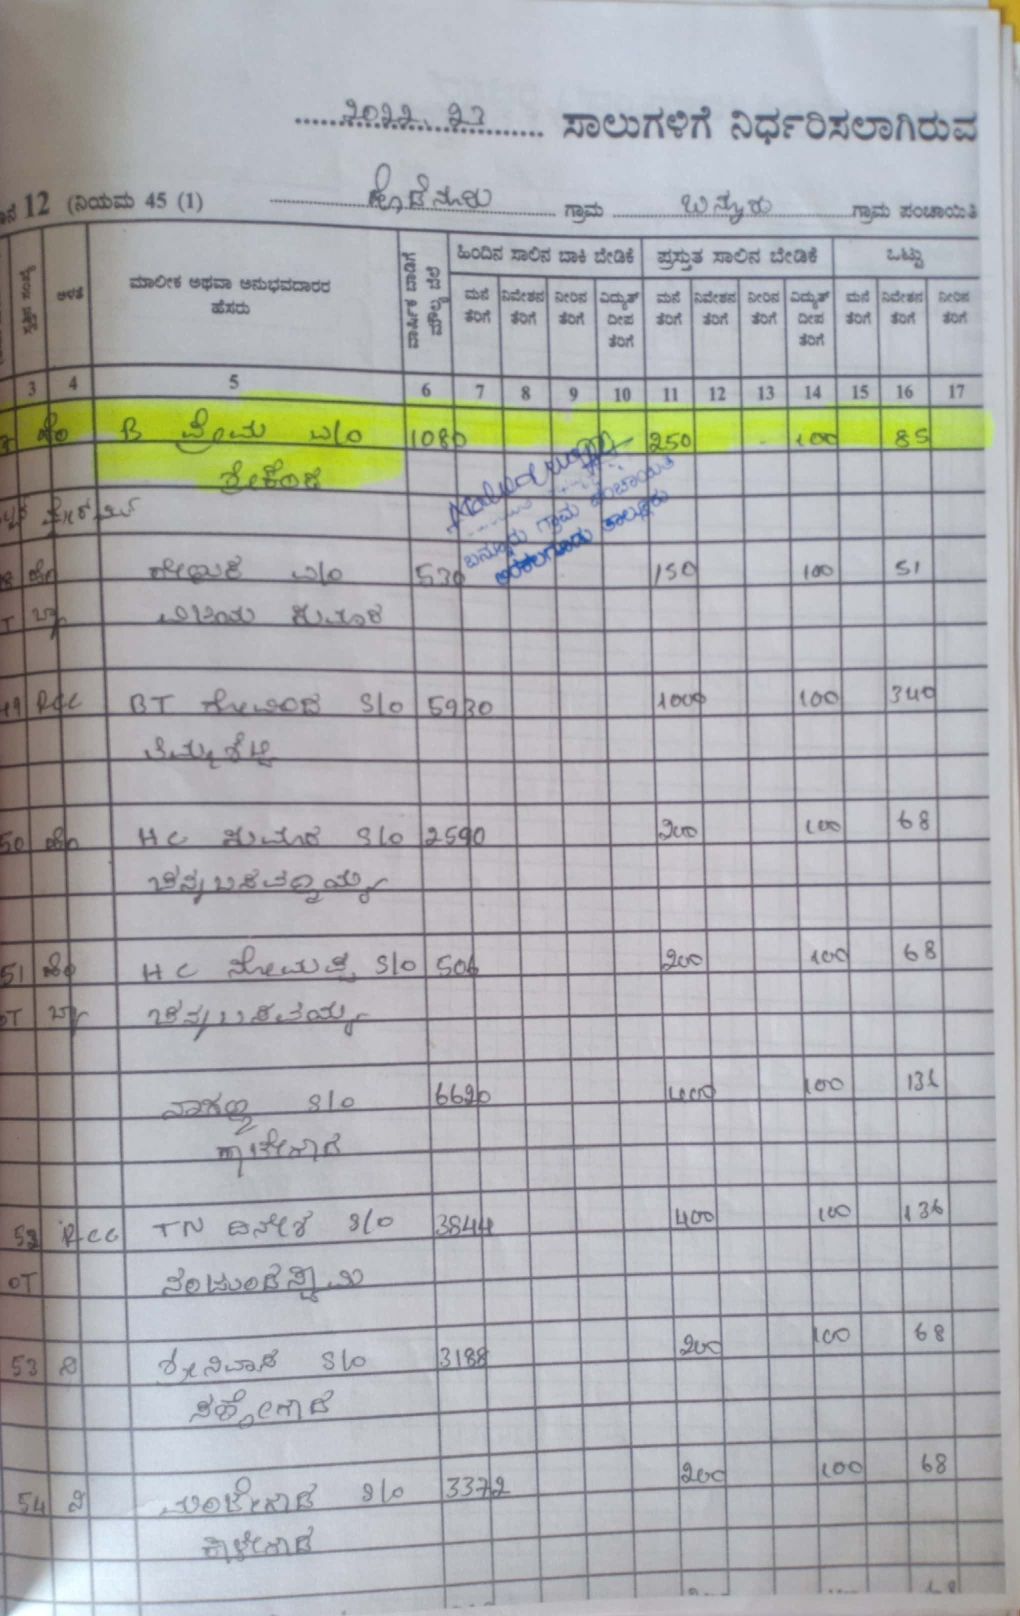 ೨೦೨೨. ೨೩ ಸಾಲುಗಳಿಗೆ ನಿರ್ಧರಿಸಲಾಗಿರುವ
12 (ನಿಯಮ 45 (1) ಹೊಡೆನೂರು ಗ್ರಾಮ ಬನ್ನೂರು ಗ್ರಾಮ ಪಂಚಾಯಿತಿ
ಅಳತೆ ಮಾಲೀಕ ಅಥವಾ ಅನುಭವದಾರರ ಹೆಸರು ವಾರ್ಷಿಕ ಬಾಡಿಗೆ ಮೌಲ್ಯ ಬೆಲೆ ಹಿಂದಿನ ಸಾಲಿನ ಬಾಕಿ ಬೇಡಿಕೆ ಪ್ರಸ್ತುತ ಸಾಲಿನ ಬೇಡಿಕೆ ಒಟ್ಟು
ಮನೆ ತೆರಿಗೆ ನಿವೇಶನ ತೆರಿಗೆ ನೀರಿನ ತೆರಿಗೆ ವಿದ್ಯುತ್ ದೀಪ ತೆರಿಗೆ ಮನೆ ತೆರಿಗೆ ನಿವೇಶನ ತೆರಿಗೆ ನೀರಿನ ತೆರಿಗೆ ವಿದ್ಯುತ್ ದೀಪ ತೆರಿಗೆ ಮನೆ ತೆರಿಗೆ ನಿವೇಶನ ತೆರಿಗೆ ನೀರಿನ ತೆರಿಗೆ
3 4 5 6 7 8 9 10 11 12 13 14 15 16 17
ಹೆಂ B ಪ್ರೇಮ W/O 1080 250 100 85
ಶ್ರೀಕಂಠ
ಬನ್ನೂರು ಗ್ರಾಮ ಪಂಚಾಯಿತಿ
ಅರಕಲಗೂಡು ತಾಲ್ಲೂಕು
ಹೆಂ W/O 530 150 100 51
ವಿಜಯ ಕುಮಾರ
49 RCC BT ಗೋವಿಂದ S/O 5930 1000 100 340
ತಿಮ್ಮಶೆಟ್ಟಿ
50 ಹೆಂ HC ಕುಮಾರ S/O 2590 200 100 68
51 ಹೆಂ HC ಸೋಮಣ್ಣ S/O 506 200 100 68
ಚನ್ನಬಸವಯ್ಯ
S/O 6620 400 100 136
53 RCC TN ದಿನೇಶ S/O 3844 400 100 136
OT ನಂಜುಂಡಸ್ವಾಮಿ
53 ನಿ ಶ್ರೀನಿವಾಸ S/O 3188 200 100 68
54 ನಿ ಮಂಜೇಗೌಡ S/O 3372 200 100 68
ಕಾಳೇಗೌಡ